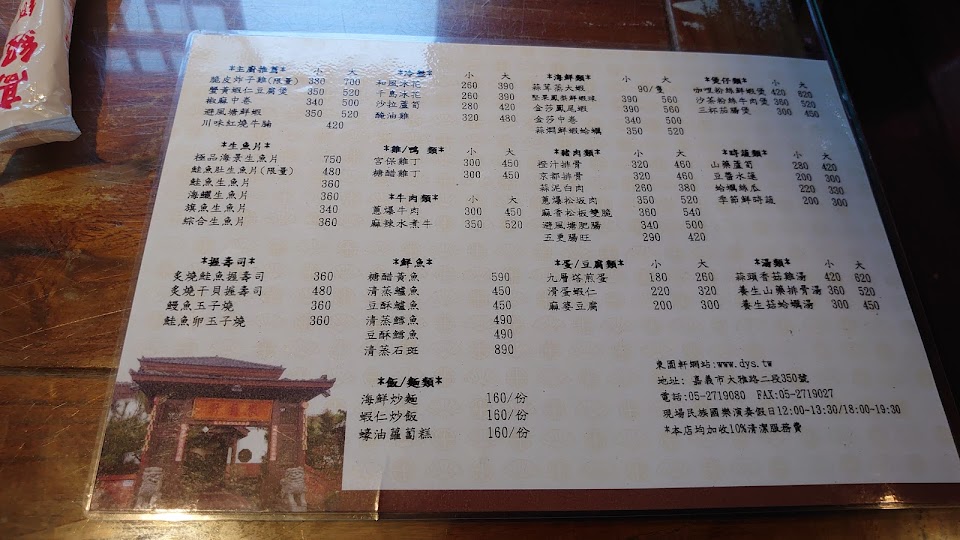 *主廚推薦* 小 大
脆皮炸子雞(限量) 380 700
蟹黃蝦仁豆腐煲 350 520
椒麻中卷 340 500
避風塘鮮蝦 350 520
川味紅燒牛腩 420
*生魚片*
極品海景生魚片 750
鮭魚肚生魚片(限量) 480
鮭魚生魚片 360
海鱺生魚片 360
旗魚生魚片 340
綜合生魚片 360
*握壽司*
炙燒鮭魚握壽司 360
炙燒干貝握壽司 480
鰻魚玉子燒 360
鮭魚卵玉子燒 360
*冷盤* 小 大
和風冰花 260 390
千島冰花 260 390
沙拉蘆筍 280 420
醃油雞 320 480
*雞/鴨 類* 小 大
宮保雞丁 300 450
糖醋雞丁 300 450
*牛肉類* 小 大
蔥爆牛肉 300 450
麻辣水煮牛 350 520
*鮮魚*
糖醋黃魚 590
清蒸鱸魚 450
豆酥鱸魚 450
清蒸鱈魚 490
豆酥鱈魚 490
清蒸石斑 890
*飯/麵類*
海鮮炒麵 160/份
蝦仁炒飯 160/份
蠔油蘿蔔糕 160/份
*海鮮類* 小 大
蒜茸蒸大蝦 90/隻
堅果鳳梨鮮蝦球 390 560
金莎鳳尾蝦 390 560
金莎中卷 340 500
蒜燜鮮蝦蛤蠣 350 520
*豬肉類* 小 大
橙汁排骨 320 460
京都排骨 320 460
蒜泥白肉 260 380
蔥爆松坂肉 350 520
麻香松板雙脆 360 540
避風塘肥腸 340 500
五更腸旺 290 420
*蛋/豆腐類* 小 大
九層塔煎蛋 180 260
滑蛋蝦仁 220 320
麻婆豆腐 200 300
*煲仔類* 小 大
咖哩粉絲鮮蝦煲 420 620
沙茶粉絲牛肉煲 350 520
三杯茄腸煲 300 450
*時蔬類* 小 大
山藥蘆筍 280 420
豆醬水蓮 200 300
蛤蠣絲瓜 220 330
季節鮮時蔬 200 300
*湯類* 小 大
蒜頭香菇雞湯 420 620
養生山藥排骨湯 360 520
養生菇蛤蠣湯 300 450
東園軒網站:www.dys.tw
地址: 嘉義市大雅路二段350號
電話:05-2719080 FAX:05-2719027
現場民族國樂演奏假日12:00~13:30/18:00-19:30
*本店均加收10%清潔服務費